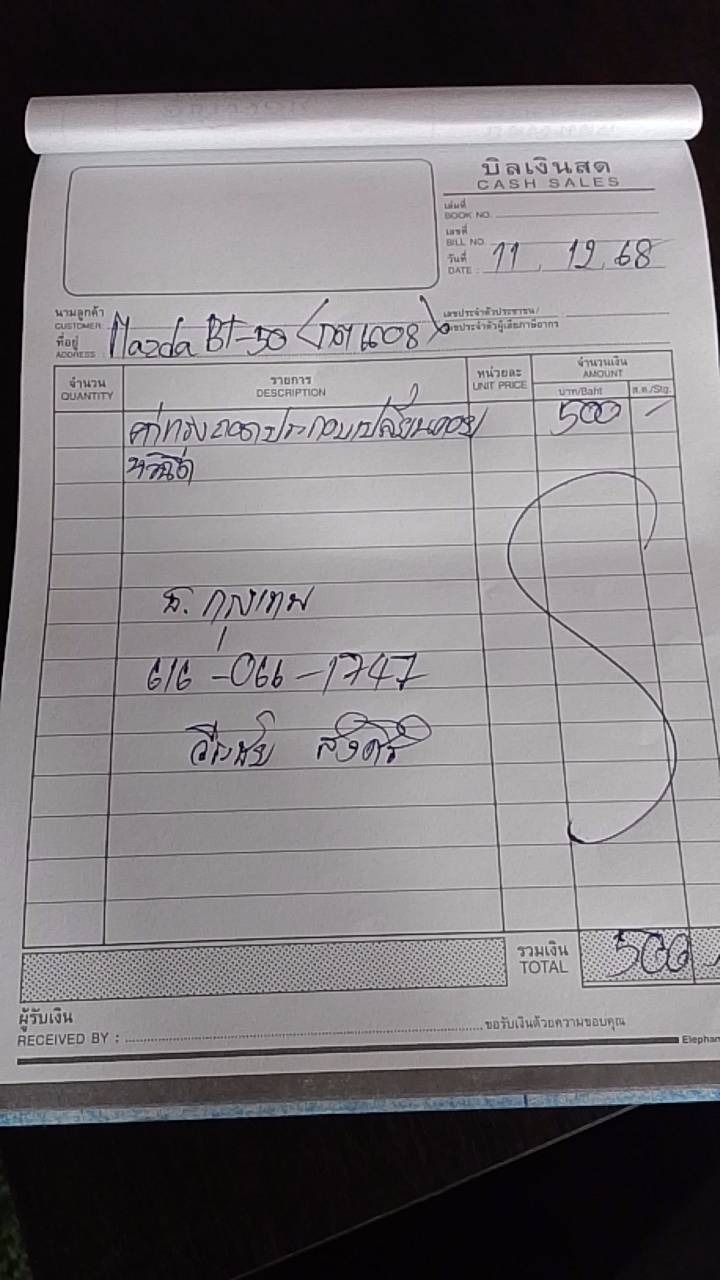 บิลเงินสด
CASH SALES
เล่มที่
BOOK NO.
เลขที่
BILL NO.
วันที่
DATE : 11 . 12 . 68
นามลูกค้า
CUSTOMER
ที่อยู่
ADDRESS
Mazda BT-50 ( 6608 )
เลขประจำตัวประชาชน/
เลขประจำตัวผู้เสียภาษีอากร
จำนวน
QUANTITY
รายการ
DESCRIPTION
หน่วยละ
UNIT PRICE
จำนวนเงิน
AMOUNT
บาท/Baht
ส.ต./Stg.
ค่าแรงถอดประกอบเปลี่ยนคอย 500 -
หัวฉีด
ธ. กรุงเทพ
616-066-1747
วีระชัย
รวมเงิน
TOTAL
500 -
ผู้รับเงิน
RECEIVED BY :
ขอรับเงินด้วยความขอบคุณ
Elephan